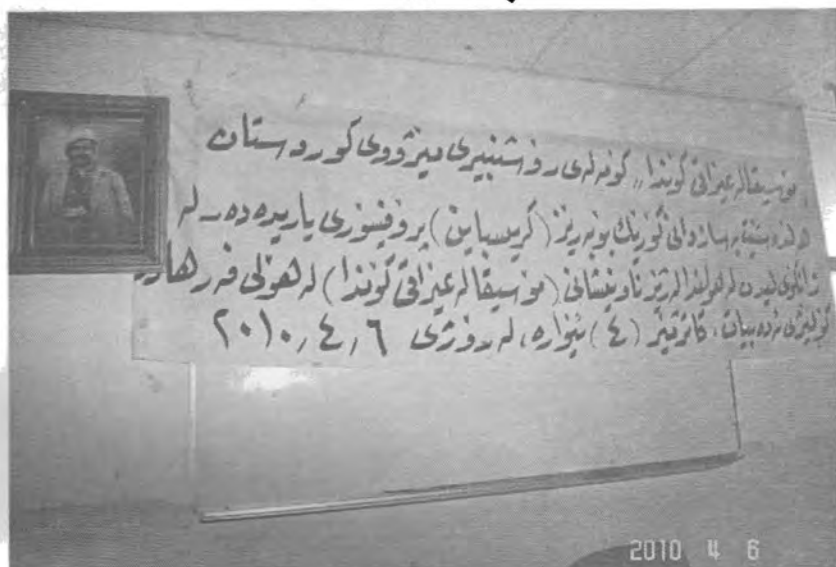 „موسیقا لە عیراقی کۆندا„ کۆمەلەی رۆشنبیری میژووی کوردستان
هەلدەستیت بە سازدانی کۆڕیک بۆ بەریز (گریسباین) پرۆفیسۆری یاریدەدەر لە
زانکۆی لیدن لە هۆلندا لە ژیر ناونیشانی (مۆسیقا لە عیراقی کۆندا) لە هۆلی فەرهاد
کۆلیژی ئەدەبیات، کاتژمیر (٤) ئیوارە، لە رۆژی ٢٠١٠,٤,٦
2010 4 6